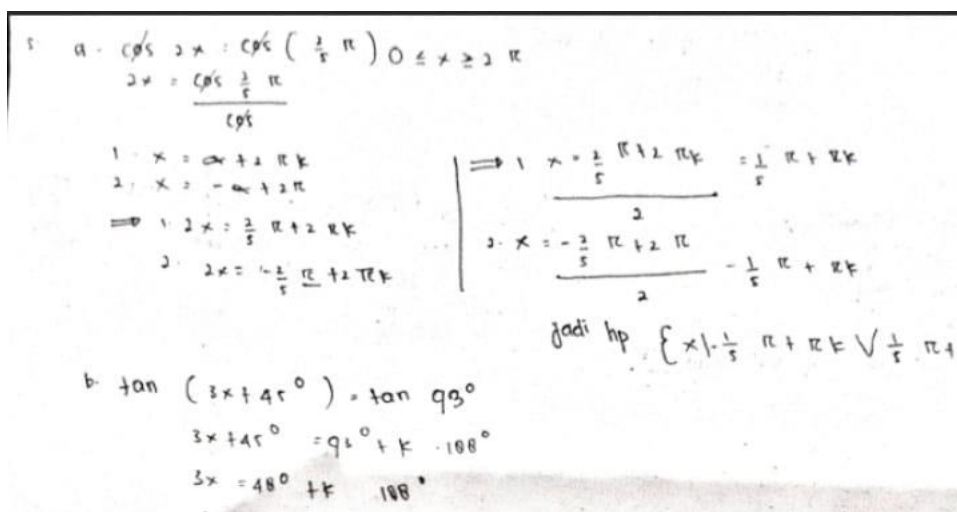 5. a. cos 2x = cos ( 2/5 π ) 0 ≤ x ≥ 2 π
2x = cos 2/5 π / cos
1. x = α + 2 πk
2. x = - α + 2π
⇒ 1. 2x = 2/5 π + 2 πk
2. 2x = -2/5 π + 2πk
⇒ 1 x = 2/5 π + 2 πk / 2 = 1/5 π + πk
2. x = - 2/5 π + 2 π / 2 - 1/5 π + πk
jadi hp { x | - 1/5 π + πk V 1/5 π +
b. tan ( 3x + 45° ) = tan 93°
3x + 45° = 93° + k . 180°
3x = 48° + k 180°